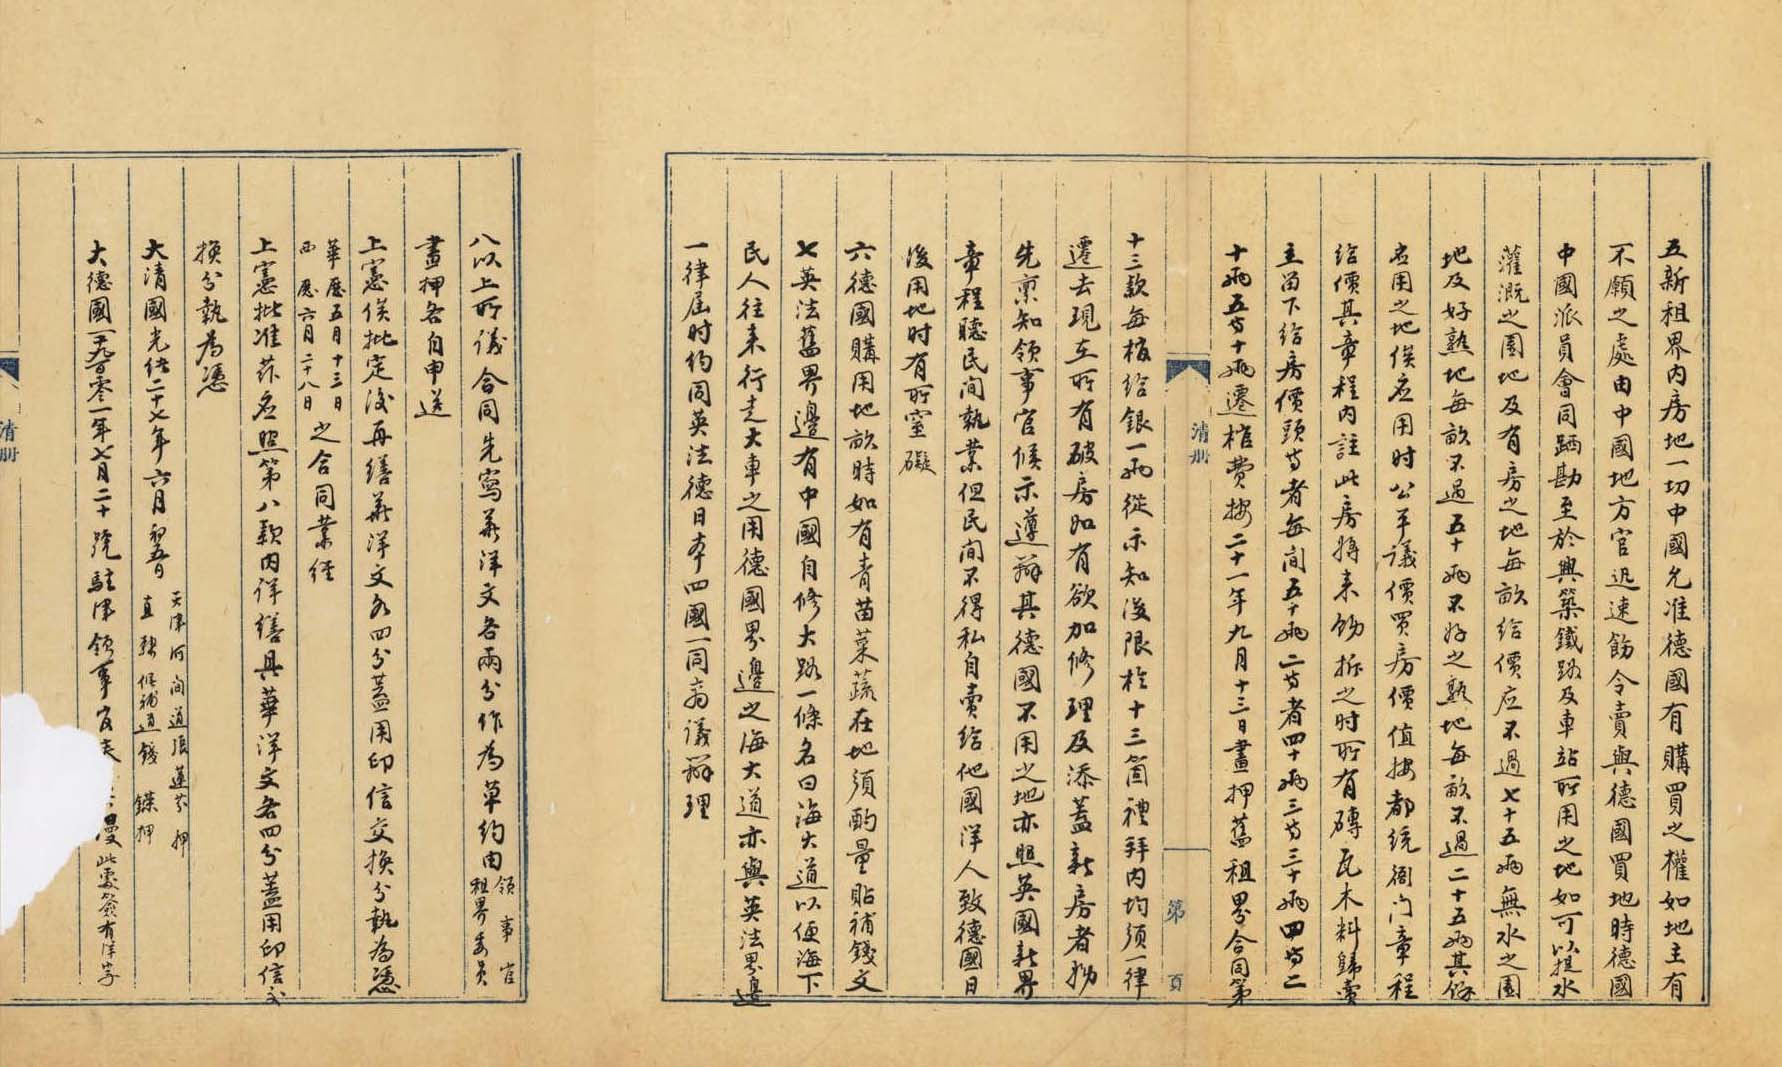 五新租界内房地一切中國允准德國有購買之權如地主有
不願之處由中國地方官迅速飭令賣與德國買地時德國
中國派員會同踩勘至於興築鐵路及車站所用之地如可以提水
灌溉之園地及有房之地每畝給價应不過七十五兩無水之園
地及好熟地每畝不過五十兩不好之熟地每畝不過二十五兩其餘
应用之地俟应用时公平議價買房價值按都統衙门章程
给價其章程内註此房將来飭拆之时所有磚瓦木料歸賣
主留下给房價頭等者每间五十兩二等者四十兩三等三十兩四等二
十兩五等十兩遷棺费按二十一年九月十三日畫押舊租界合同第
清册
第 頁
十三款每棺给銀一兩從示知後限於十三箇禮拜内均须一律
遷去現在所有破房如有欲加修理及添蓋新房者務
先禀知領事官候示遵辦其德國不用之地亦照英國新界
章程聽民间執業但民间不得私自賣给他國洋人致德國日
後用地时有所窒礙
六德國購用地畝時如有青苗菜蔬在地须酌量貼補錢文
七英法舊界邊有中國自修大路一條名曰海大道以便海下
民人往来行走大車之用德國界邊之海大道亦與英法界邊
一律屆时约同英法德日本四國一同商议辦理
八以上所议合同先寫華洋文各兩分作為草约由領事官
租界委員
畫押各自申送
上憲俟批定後再繕華洋文各四分蓋用印信交换分執為憑
華歷五月十三日
西歷六月二十八日之合同業經
上憲批准茲应照第八款内详缮具華洋文各四分蓋用印信或
换分執為憑
大清國光绪二十七年六月初五日 天津河间道張蓮芬押
直隸候補道錢鑅押
大德國一千九百零一年七月二十號駐津領事官 漫此處簽有洋字
清册